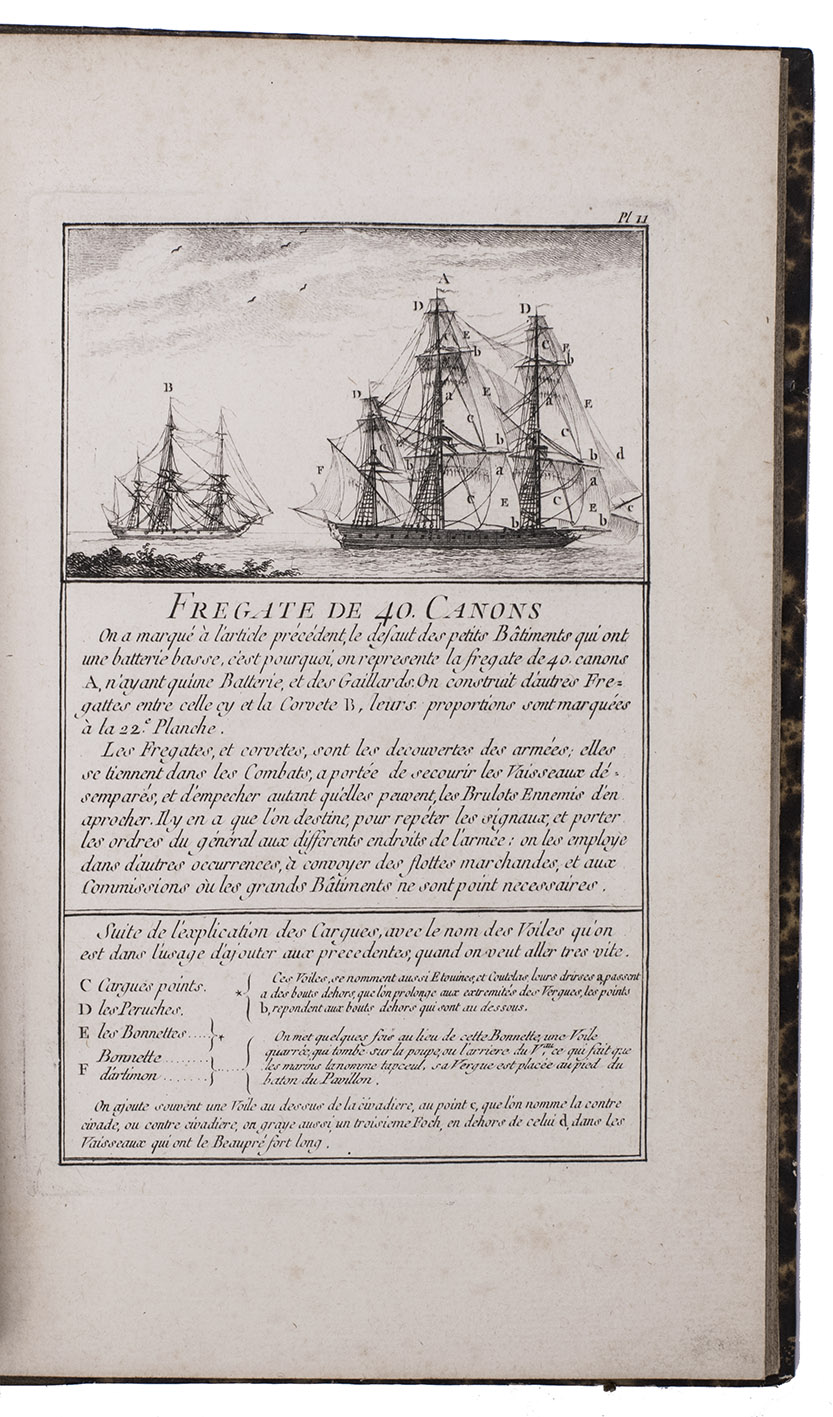 Pl 11
A
D
D
E
C
C
E
b
b
B
a
a
D
E
E
C
C
d
b
b
b
F
a
a
C
C
E
E
c
b
b
FREGATE DE 40. CANONS
On a marqué à l'article précédent, le defaut des petits Bâtiments qui ont
une batterie basse, c'est pourquoi, on represente la fregate de 40. canons
A, n'ayant qu'une Batterie, et des Gaillards. On construit d'autres Fre=
gattes entre celle cy et la Corvete B, leurs proportions sont marquées
à la 22.e Planche.
Les Fregates, et corvetes, sont les decouvertes des armées; elles
se tiennent dans les Combats, a portée de secourir les Vaisseaux dé=
semparés, et d'empecher autant qu'elles peuvent, les Brulots Ennemis d'en
aprocher. Il y en a que l'on destine, pour repéter les signaux, et porter
les ordres du général aux differents endroits de l'armée: on les employe
dans d'autres occurrences, à convoyer des flottes marchandes, et aux
Commissions où les grands Bâtiments ne sont point necessaires.
Suite de l'explication des Cargues, avec le nom des Voiles qu'on
est dans l'usage d'ajouter aux precedentes, quand on veut aller tres vite.
C Cargues points.
D les Peruches.
E les Bonnettes....*
F Bonnette........
d'artimon.......
* Ces Voiles, se nomment aussi Etouines, et Coutelas, leurs drisses a, passent
a des bouts dehors, que l'on prolonge aux extremités des Vergues, les points
b, repondent aux bouts dehors qui sont au dessous.
On met quelques fois au lieu de cette Bonnette, une Voile
quarrée, qui tombe sur la poupe, ou l'arriere du V.au ce qui fait que
les marins la nomme tapceul, sa Vergue est placée au pied du
baton du Pavillon.
On ajoute souvent une Voile au dessus de la civadiere, au point c, que l'on nomme la contre
civade, ou contre civadiere, on graye aussi, un troisieme Foch, en dehors de celui d, dans les
Vaisseaux qui ont le Beaupré fort long.